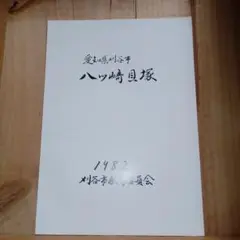 愛知県刈谷市
八ツ崎貝塚
198
刈谷市教育委員会